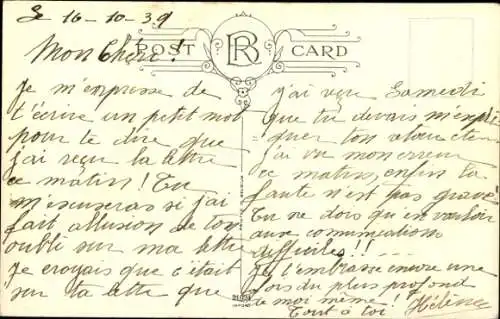 Le 16-10-39
POST CARD
RP
Mon Chéri!
Je m'empresse de
t'écrire un petit mot
pour te dire que
j'ai reçu ta lettre
ce matin! Tu
m'excuseras si j'ai
fait allusion de ton
oubli sur ma lettre
je croyais que c'était
sur ta lettre que
j'ai reçu Samedi
que tu devais m'expli
quer ton
j'ai vu mon erreur
ce matin, enfin ta
faute n'est pas grave
Tu ne dois qu'en vouloir
aux communications
difficiles!!
Je t'embrasse encore une
fois du plus profond
de moi même!
Tout à toi! Hélène